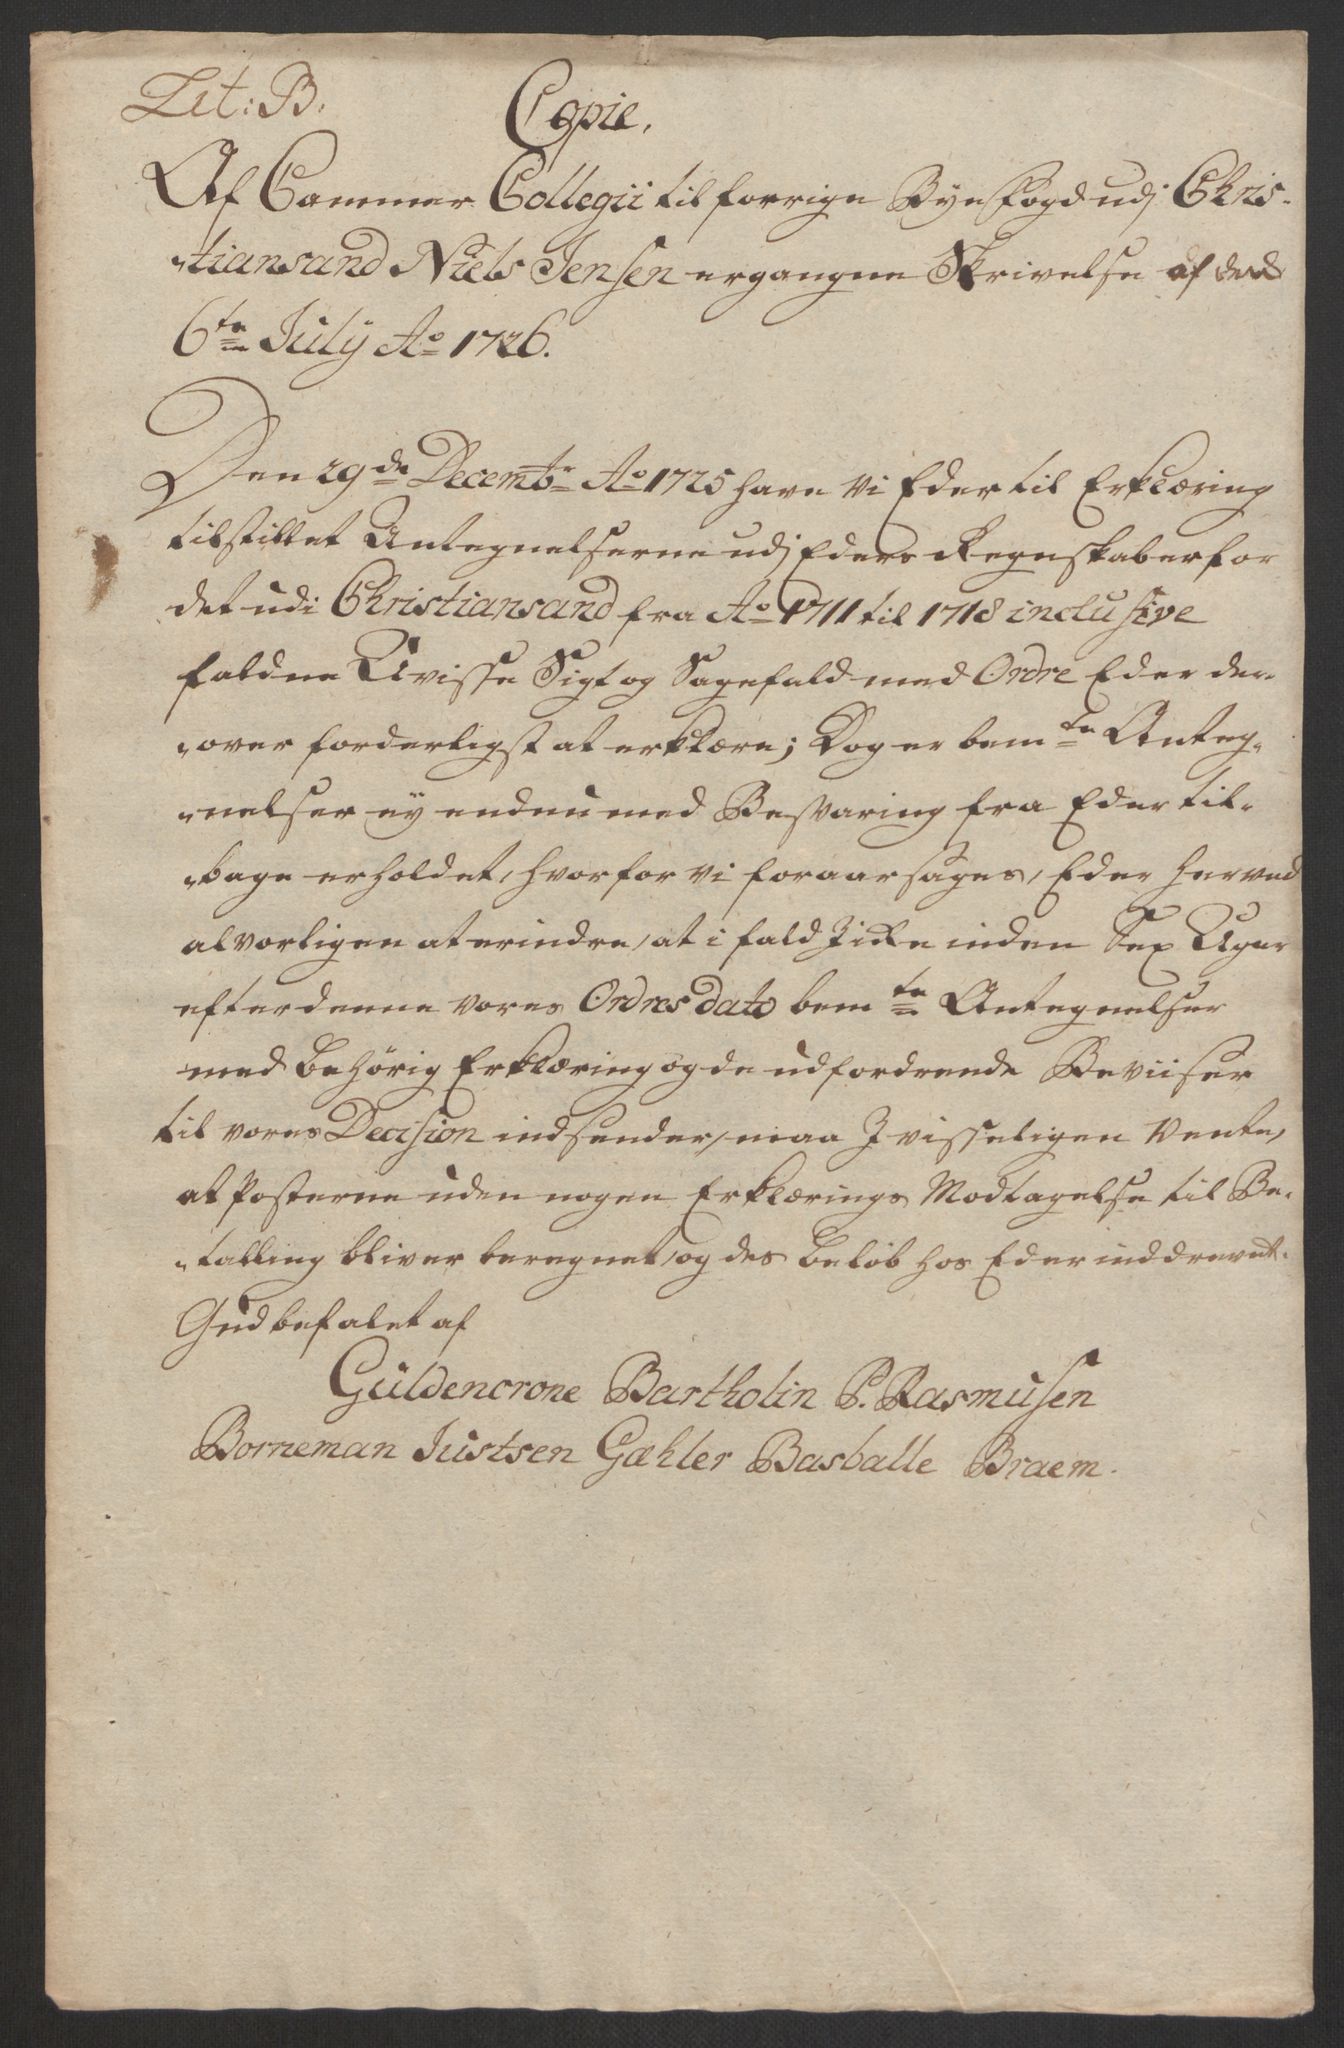 Lit: B.
Copie.
Af Cammer Collegii til forrige Byefogd udj Chris-
tiansand Niels Jensen ergangne Skrivelse af den
6te July Ao 1726.
Den 29de Decembr Ao 1725 have Vi Eder til Erklæring
tilstillet Antegnelserne udj Eders Regnskaber for
det udi Christiansand fra Ao 1711 til 1718 inclusive
faldne Uvisse Sigt og Sagefald med Ordre Eder der-
over forderligst at erklære; Dog er bemte Anteg-
nelser ey endnu med Besvaring fra Eder til-
bage erholdet, hvorfor vi foraarsages, Eder herved
alvorligen at erindre, at i fald I icke inden Sex Uger
efter denne vores Ordres dato bemte Antegnelser
med behörig Erklæring og de udfordrende Beviiser
til vores Decision indsender, maa I visseligen vente,
at Posterne uden nogen Erklærings Modtagelse til Be-
talling bliver beregnet, og des belöb hos Eder inddrevet.
Gud befalet af
Güldencrone Bartholin P. Rasmusen
Borneman Justsen Gæhler Basballe Braem.